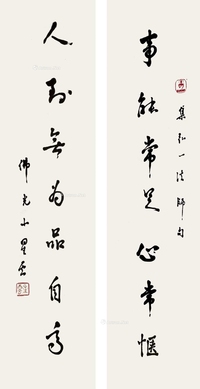 事能常足心常愜
集弘一法師句
人到無為品自高
佛光山星雲